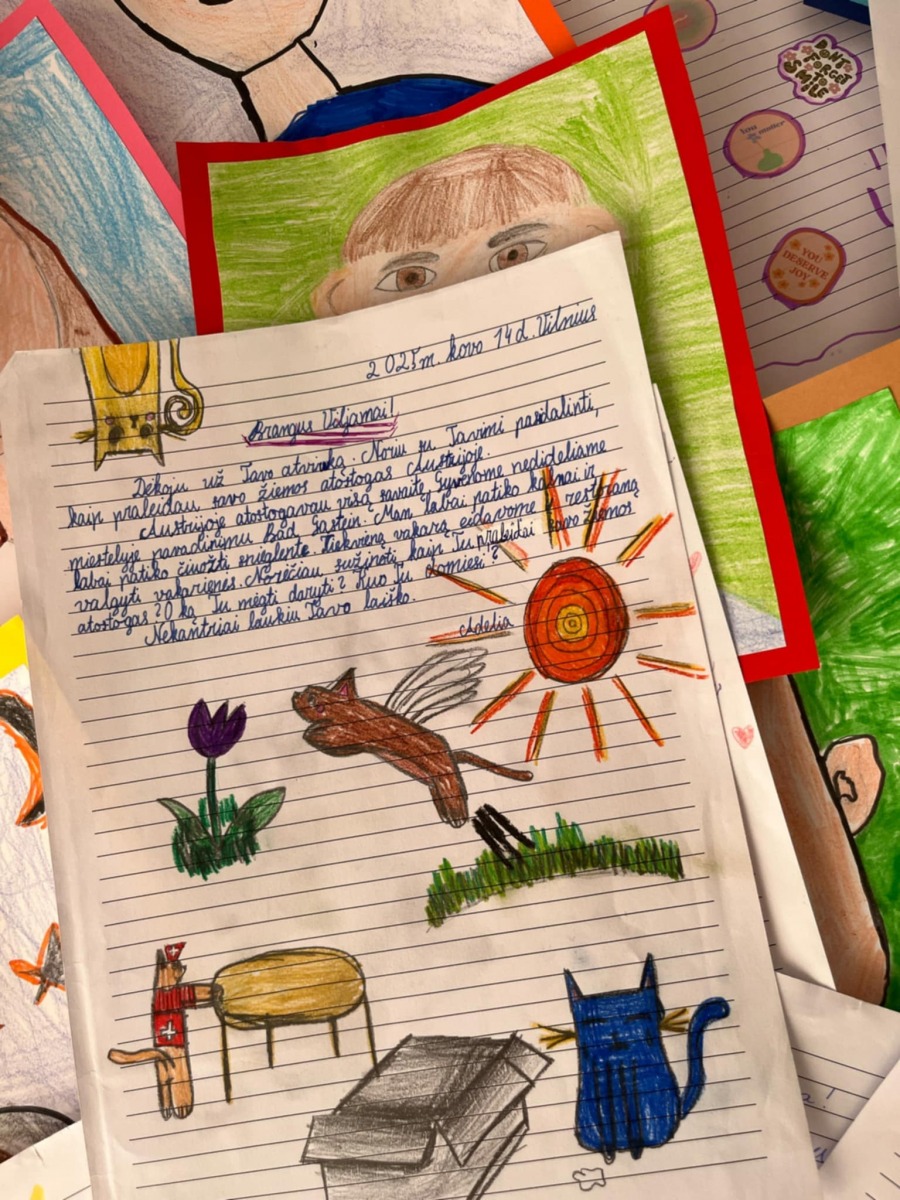 DON'T FORGET TO SMILE
YOU DESERVE JOY
2025m. kovo 14d. Vilnius
Brangus Viljamai!
Dėkoju už Tavo atvirką. Noriu su Tavimi pasidalinti,
kaip praleidau savo žiemos atostogas Austrijoje.
Austrijoje atostogavau visą savaitę. Gyvenome nedideliame
miestelyje pavadinimu Bad Gastein. Man labai patiko kalnai ir
labai patiko čiuožti snieglente. Kiekvieną vakarą eidavome į restoraną
valgyti vakarienės. Norėčiau sužinoti kaip Tu praleidai savo žiemos
atostogas? O ką Tu mėgti daryti? Kuo Tu domiesi?
Nekantriai lauksiu Tavo laiško.
Adelia